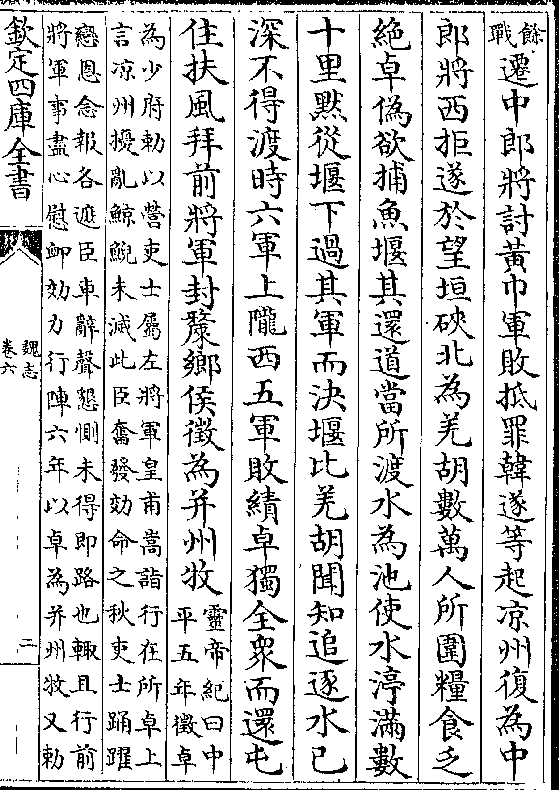 餘
戰
遷中郎將討黃巾軍敗抵罪韓遂等起凉州復為中
郎將西拒遂於望垣硤北為羌胡數萬人所圍糧食乏
絶卓偽欲捕魚堰其還道當所渡水為池使水渟滿數
十里黙從堰下過其軍而決堰比羌胡聞知追逐水已
深不得渡時六軍上隴西五軍敗績卓獨全衆而還屯
住扶風拜前將軍封斄鄉侯徵為并州牧
靈帝紀曰中
平五年徵卓
為少府勅以營吏士屬左將軍皇甫嵩詣行在所卓上
言凉州擾亂鯨鯢未滅此臣奮發効命之秋吏士踊躍
戀恩念報各遮臣車辭聲懇惻未得即路也輙且行前
將軍事盡心慰卹効力行陣六年以卓為并州牧又勅
欽定四庫全書
魏志
卷六
二